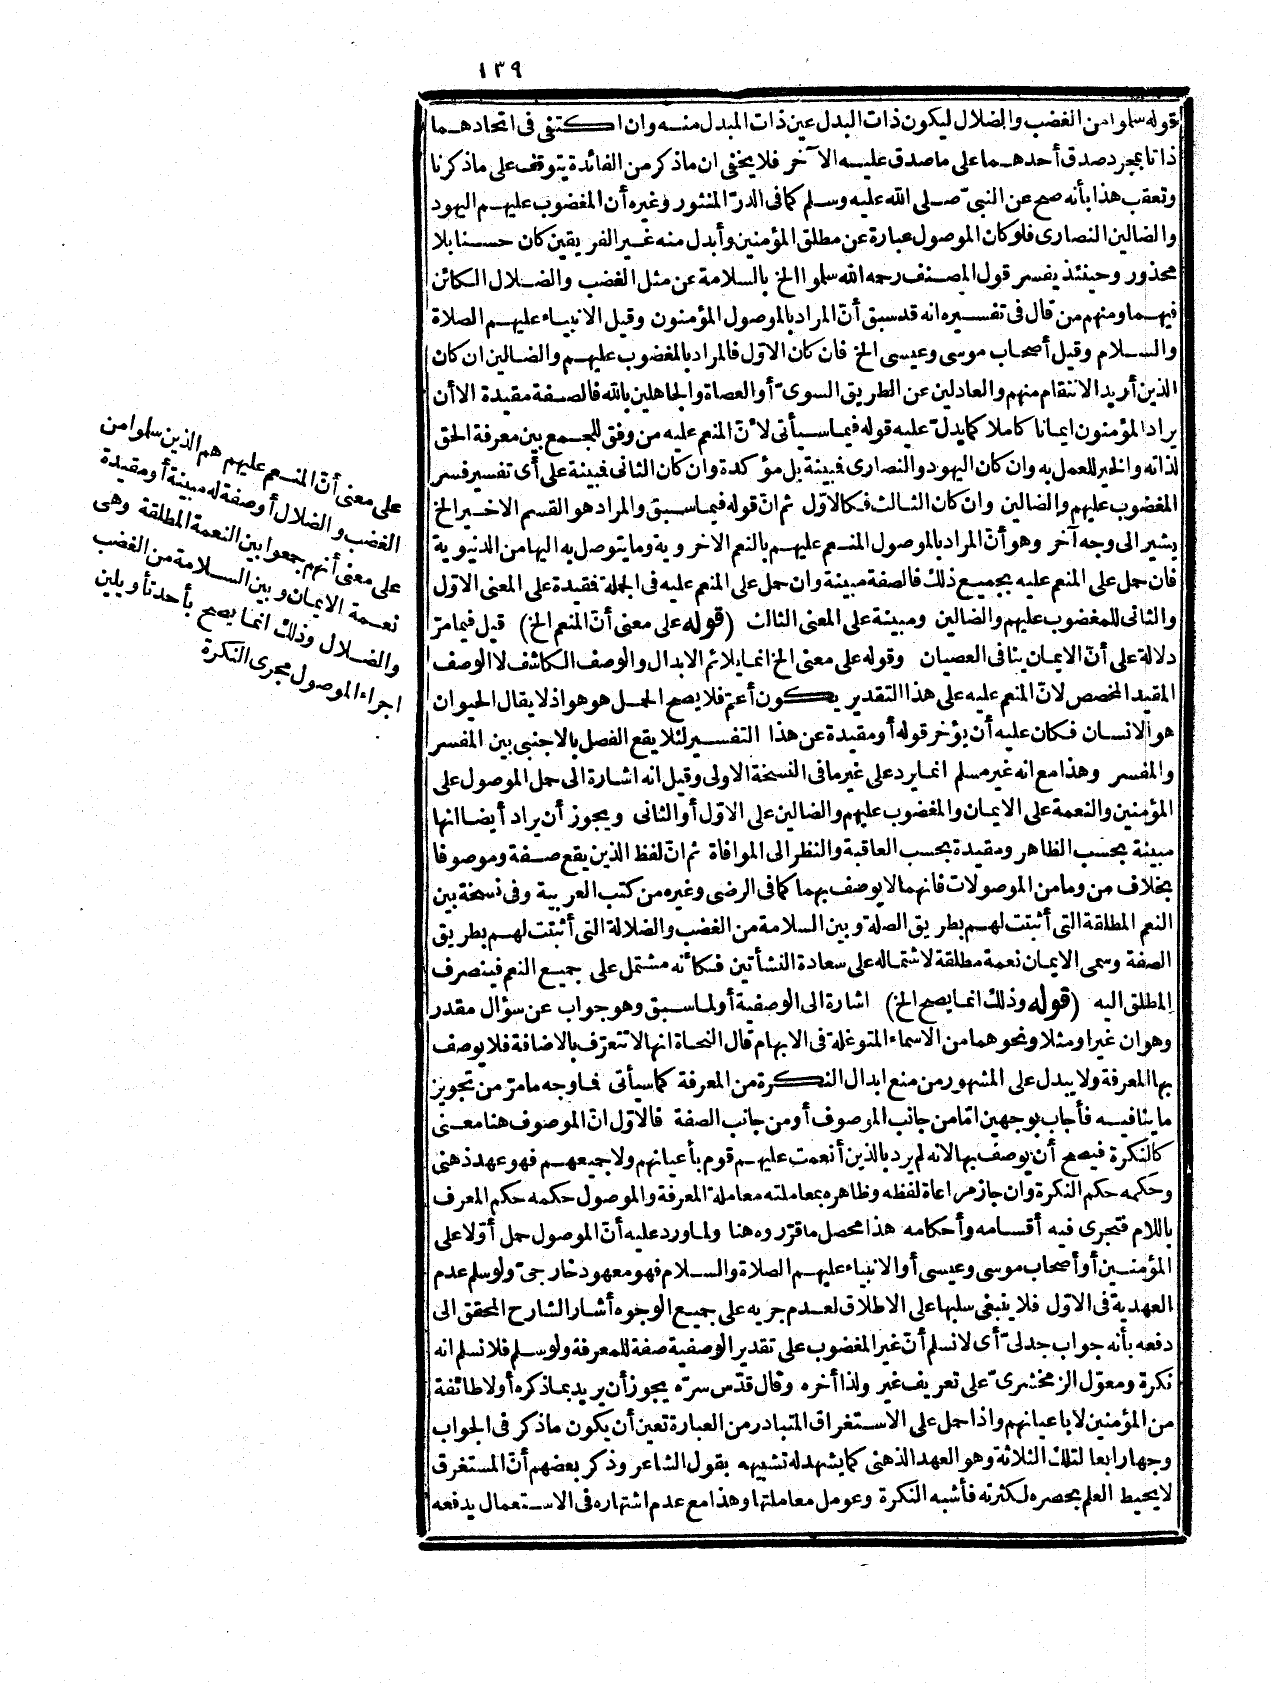 ١٣٩
قوله سلموا من الغضب والضلال ليكون ذات البدل عين ذات المبدل منه وان اكتفى فى اتحادهما
ذاتا بمجرد صدق أحدهما على ما صدق عليه الآخر فلا يخفى ان ماذكر من الفائدة يتوقف على ماذكرنا
وتعقب هذا بأنه صح عن النبىّ صلى الله عليه وسلم كما فى الدرّ المنثور وغيره أن المغضوب عليهم اليهود
والضالين النصارى فلو كان الموصول عبارة عن مطلق المؤمنين وأبدل منه غير الفريقين كان حسنا بلا
محذور وحينئذ يفسر قول المصنف رحمه الله سلموا الخ بالسلامة عن مثل الغضب والضلال الكائن
فيهما ومنهم من قال فى تفسيره انه قد سبق أنّ المراد بالموصول المؤمنون وقيل الانبياء عليهم الصلاة
والسلام وقيل أصحاب موسى وعيسى الخ فان كان الاوّل فالمراد بالمغضوب عليهم والضالين ان كان
الذين أريد الانتقام منهم والعادلين عن الطريق السوىّ أو العصاة والجاهلين بالله فالصفة مقيدة الا أن
يراد المؤمنون ايمانا كاملا كما يدلّ عليه قوله فيما سيأتى لانّ المنعم عليه من وفق للجمع بين معرفة الحق
لذاته والخير للعمل به وان كان اليهود والنصارى فمبينة بل مؤكدة وان كان الثانى فمبينة على أى تفسير فسر
المغضوب عليهم والضالين وان كان الثالث فكالاوّل ثم انّ قوله فيما سبق والمراد هو القسم الاخير الخ
يشير الى وجه آخر وهو أنّ المراد بالموصول المنعم عليهم بالنعم الاخروية وما يتوصل به اليها من الدنيوية
فان حمل على المنعم عليه بجميع ذلك فالصفة مبينة وان حمل على المنعم عليه فى الجملة فمقيدة على المعنى الاوّل
والثانى للمغضوب عليهم والضالين ومبينة على المعنى الثالث (قوله على معنى أنّ المنعم الخ) قيل فيما مرّ
دلالة على أنّ الايمان ينافى العصيان وقوله على معنى الخ انما يلائم الابدال والوصف الكاشف لا الوصف
المقيد المخصص لانّ المنعم عليه على هذا التقدير يكون أعمّ فلا يصح الحمل هو هو اذ لا يقال الحيوان
هو الانسان فكان عليه أن يؤخر قوله أو مقيدة عن هذا التفسير لئلا يقع الفصل بالاجنبى بين المفسر
والمفسر وهذا مع انه غير مسلم انما يرد على غير ما فى النسخة الاولى وقيل انه اشارة الى حمل الموصول على
المؤمنين والنعمة على الايمان والمغضوب عليهم والضالين على الاوّل أو الثانى ويجوز أن يراد أيضا انها
مبينة بحسب الظاهر ومقيدة بحسب العاقبة والنظر الى الموافاة ثم انّ لفظ الذين يقع صفة وموصوفا
بخلاف من وما من الموصولات فانهما لا يوصف بهما كما فى الرضى وغيره من كتب العربية وفى نسخة بين
النعم المطلقة التى أثبتت لهم بطريق الصلة وبين السلامة من الغضب والضلالة التى أثبتت لهم بطريق
الصفة وسمى الايمان نعمة مطلقة لاشتماله على سعادة النشأتين فكأنه مشتمل على جميع النعم فينصرف
المطلق اليه (قوله وذلك انما يصح الخ) اشارة الى الوصفية أو لما سبق وهو جواب عن سؤال مقدر
وهو ان غيرا ومثلا ونحوهما من الاسماء المتوغلة فى الابهام قال النحاة انها لا تتعرّف بالاضافة فلا يوصف
بها المعرفة ولا يبدل على المشهور من منع ابدال النكرة من المعرفة كما سيأتى فما وجه ما مرّ من تجويز
ما ينافيه فأجاب بوجهين امّا من جانب الموصوف أو من جانب الصفة فالاوّل انّ الموصوف هنا معنى
كالنكرة فيصح أن يوصف بها لانه لم يرد بالذين أنعمت عليهم قوم بأعيانهم ولا جميعهم فهو عهد ذهنى
وحكمه حكم النكرة وان جاز مراعاة لفظه وظاهره بمعاملته معاملة المعرفة والموصول حكمه حكم المعرف
باللام فتجرى فيه أقسامه وأحكامه هذا محصل ما قرّروه هنا ولما ورد عليه أنّ الموصول حمل أوّلا على
المؤمنين أو أصحاب موسى وعيسى أو الانبياء عليهم الصلاة والسلام فهو معهود خارجىّ ولو سلم عدم
العهدية فى الاوّل فلا ينبغى سلبها على الاطلاق لعدم جريه على جميع الوجوه أشار الشارح المحقق الى
دفعه بأنه جواب جدلىّ أى لا نسلم أنّ غير المغضوب على تقدير الوصفية صفة للمعرفة ولو سلم فلا نسلم انه
نكرة ومعوّل الزمخشرىّ على تعريف غير ولذا أخره وقال قدّس سرّه يجوز أن يريد بما ذكره أولا طائفة
من المؤمنين لا باعيانهم واذا حمل على الاستغراق المتبادر من العبارة تعين أن يكون ماذكر فى الجواب
وجها رابعا لتلك الثلاثة وهو العهد الذهنى كما يشهد له تشبيهه بقول الشاعر وذكر بعضهم أنّ المستغرق
لا يحيط العلم بحصره لكثرته فأشبه النكرة وعومل معاملتها وهذا مع عدم اشتهاره فى الاستعمال يدفعه
على معنى أنّ المنعم عليهم هم الذين سلموا من
الغضب والضلال أو صفة له مبينة أو مقيدة
على معنى أنهم جمعوا بين النعمة المطلقة وهى
نعمة الايمان وبين السلامة من الغضب
والضلال وذلك انما يصح بأحد تأويلين
اجراء الموصول مجرى النكرة